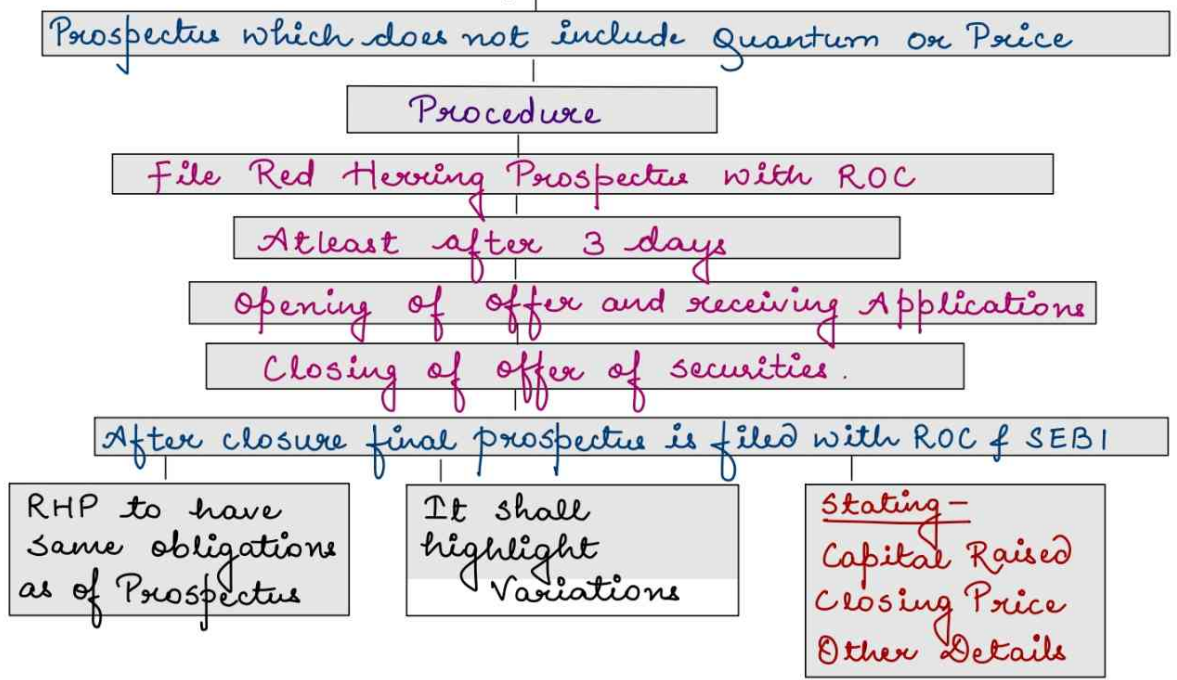 Prospectus which does not include Quantum or Price
Procedure
File Red Herring Prospectus with ROC
Atleast after 3 days
Opening of offer and receiving Applications
Closing of offer of securities.
After closure final prospectus is filed with ROC & SEBI
RHP to have
same obligations
as of Prospectus
It shall
highlight
Variations
Stating-
Capital Raised
Closing Price
Other Details